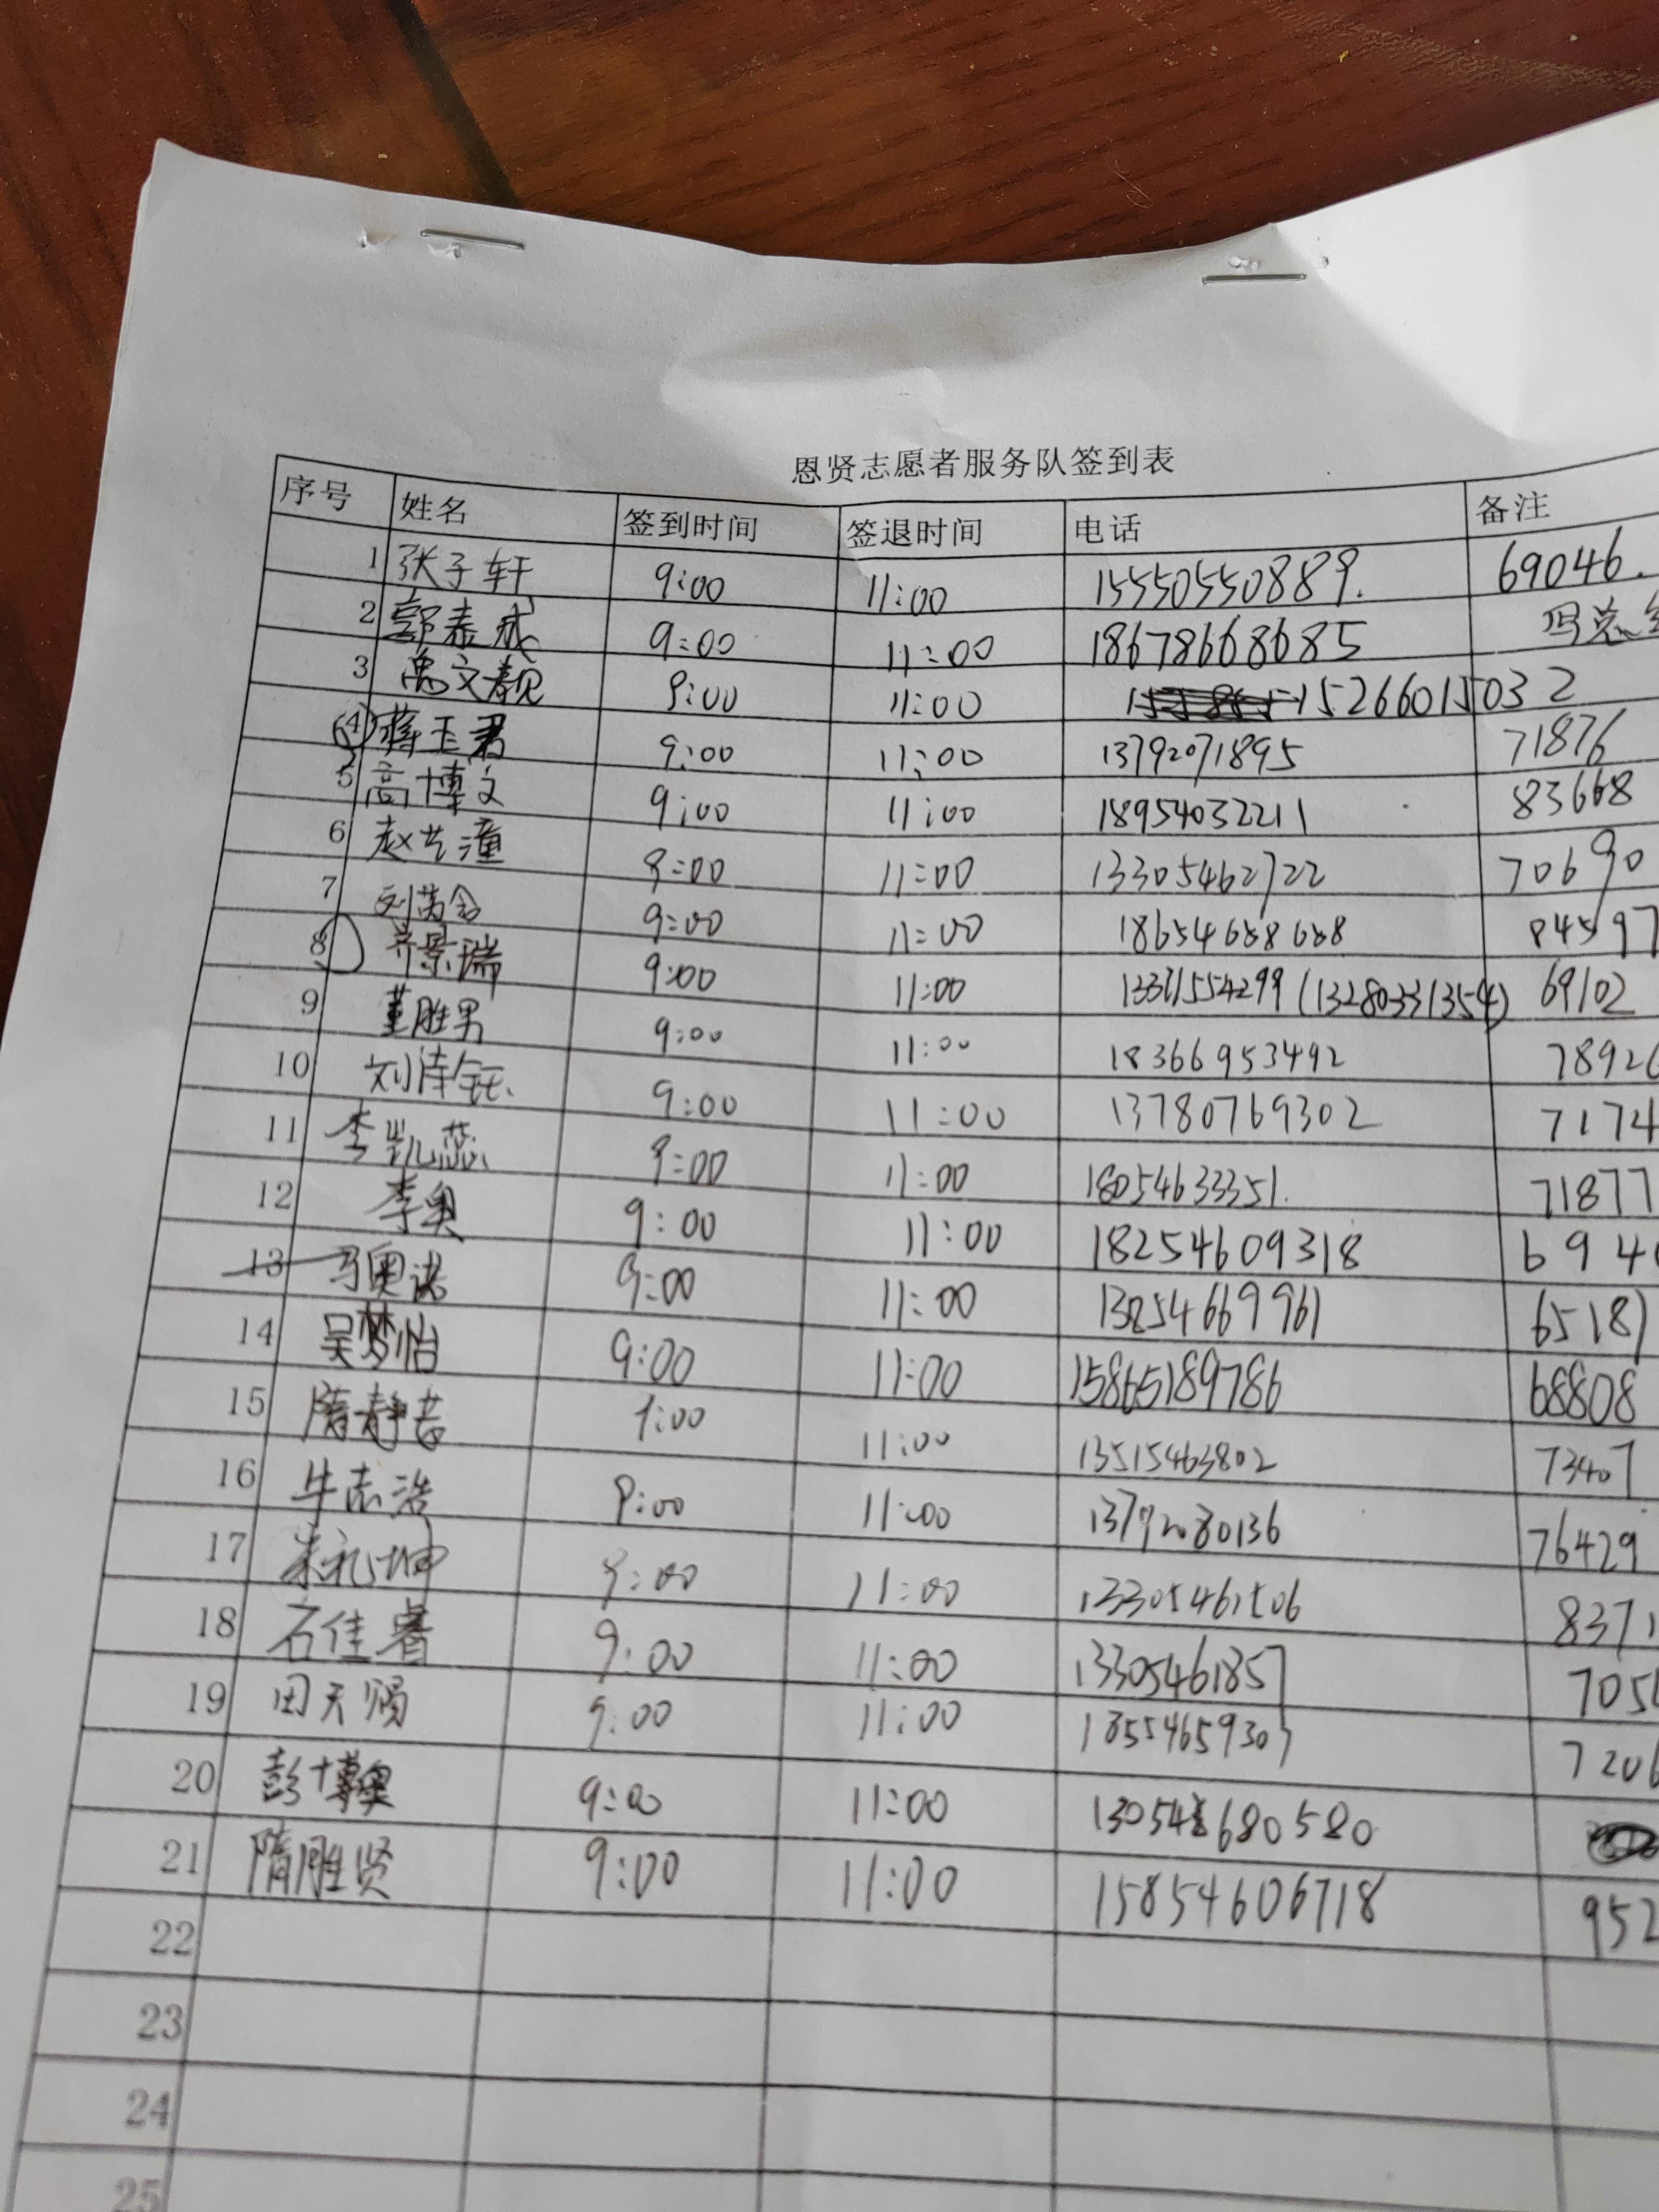 恩贤志愿者服务队签到表
序号 姓名 签到时间 签退时间 电话 备注
1 张子轩 9:00 11:00 15550550889. 69046.
2 郭泰成 9:00 11:00 18678668685
3 禹文靓 9:00 11:00 15266015032
4 蒋玉君 9:00 11:00 13792071895 71876
5 高博文 9:00 11:00 18954032211 83668
6 赵艺潼 9:00 11:00 13305462722 70690
7 9:00 11:00 18654688688 84597
8 齐景瑞 9:00 11:00 13361554299 (13280331354) 69102
9 董胜男 9:00 11:00 18366953492 7892
10 9:00 11:00 13780769302 7174
11 李凯蕊 9:00 11:00 18054633351. 71877
12 李奥 9:00 11:00 18254609318 694
13 马奥诺 9:00 11:00 13854669961 65181
14 吴梦怡 9:00 11:00 15865189786 68808
15 隋静芸 9:00 11:00 13515463802 73407
16 牛志浩 9:00 11:00 13792080136 76429
17 朱礼坤 9:00 11:00 13305461506 837
18 石佳睿 9:00 11:00 13305461857 705
19 田天赐 9:00 11:00 18554659307 720
20 彭博奥 9:00 11:00
21 隋胜贤 9:00 11:00 15854606718 952
22
23
24
25